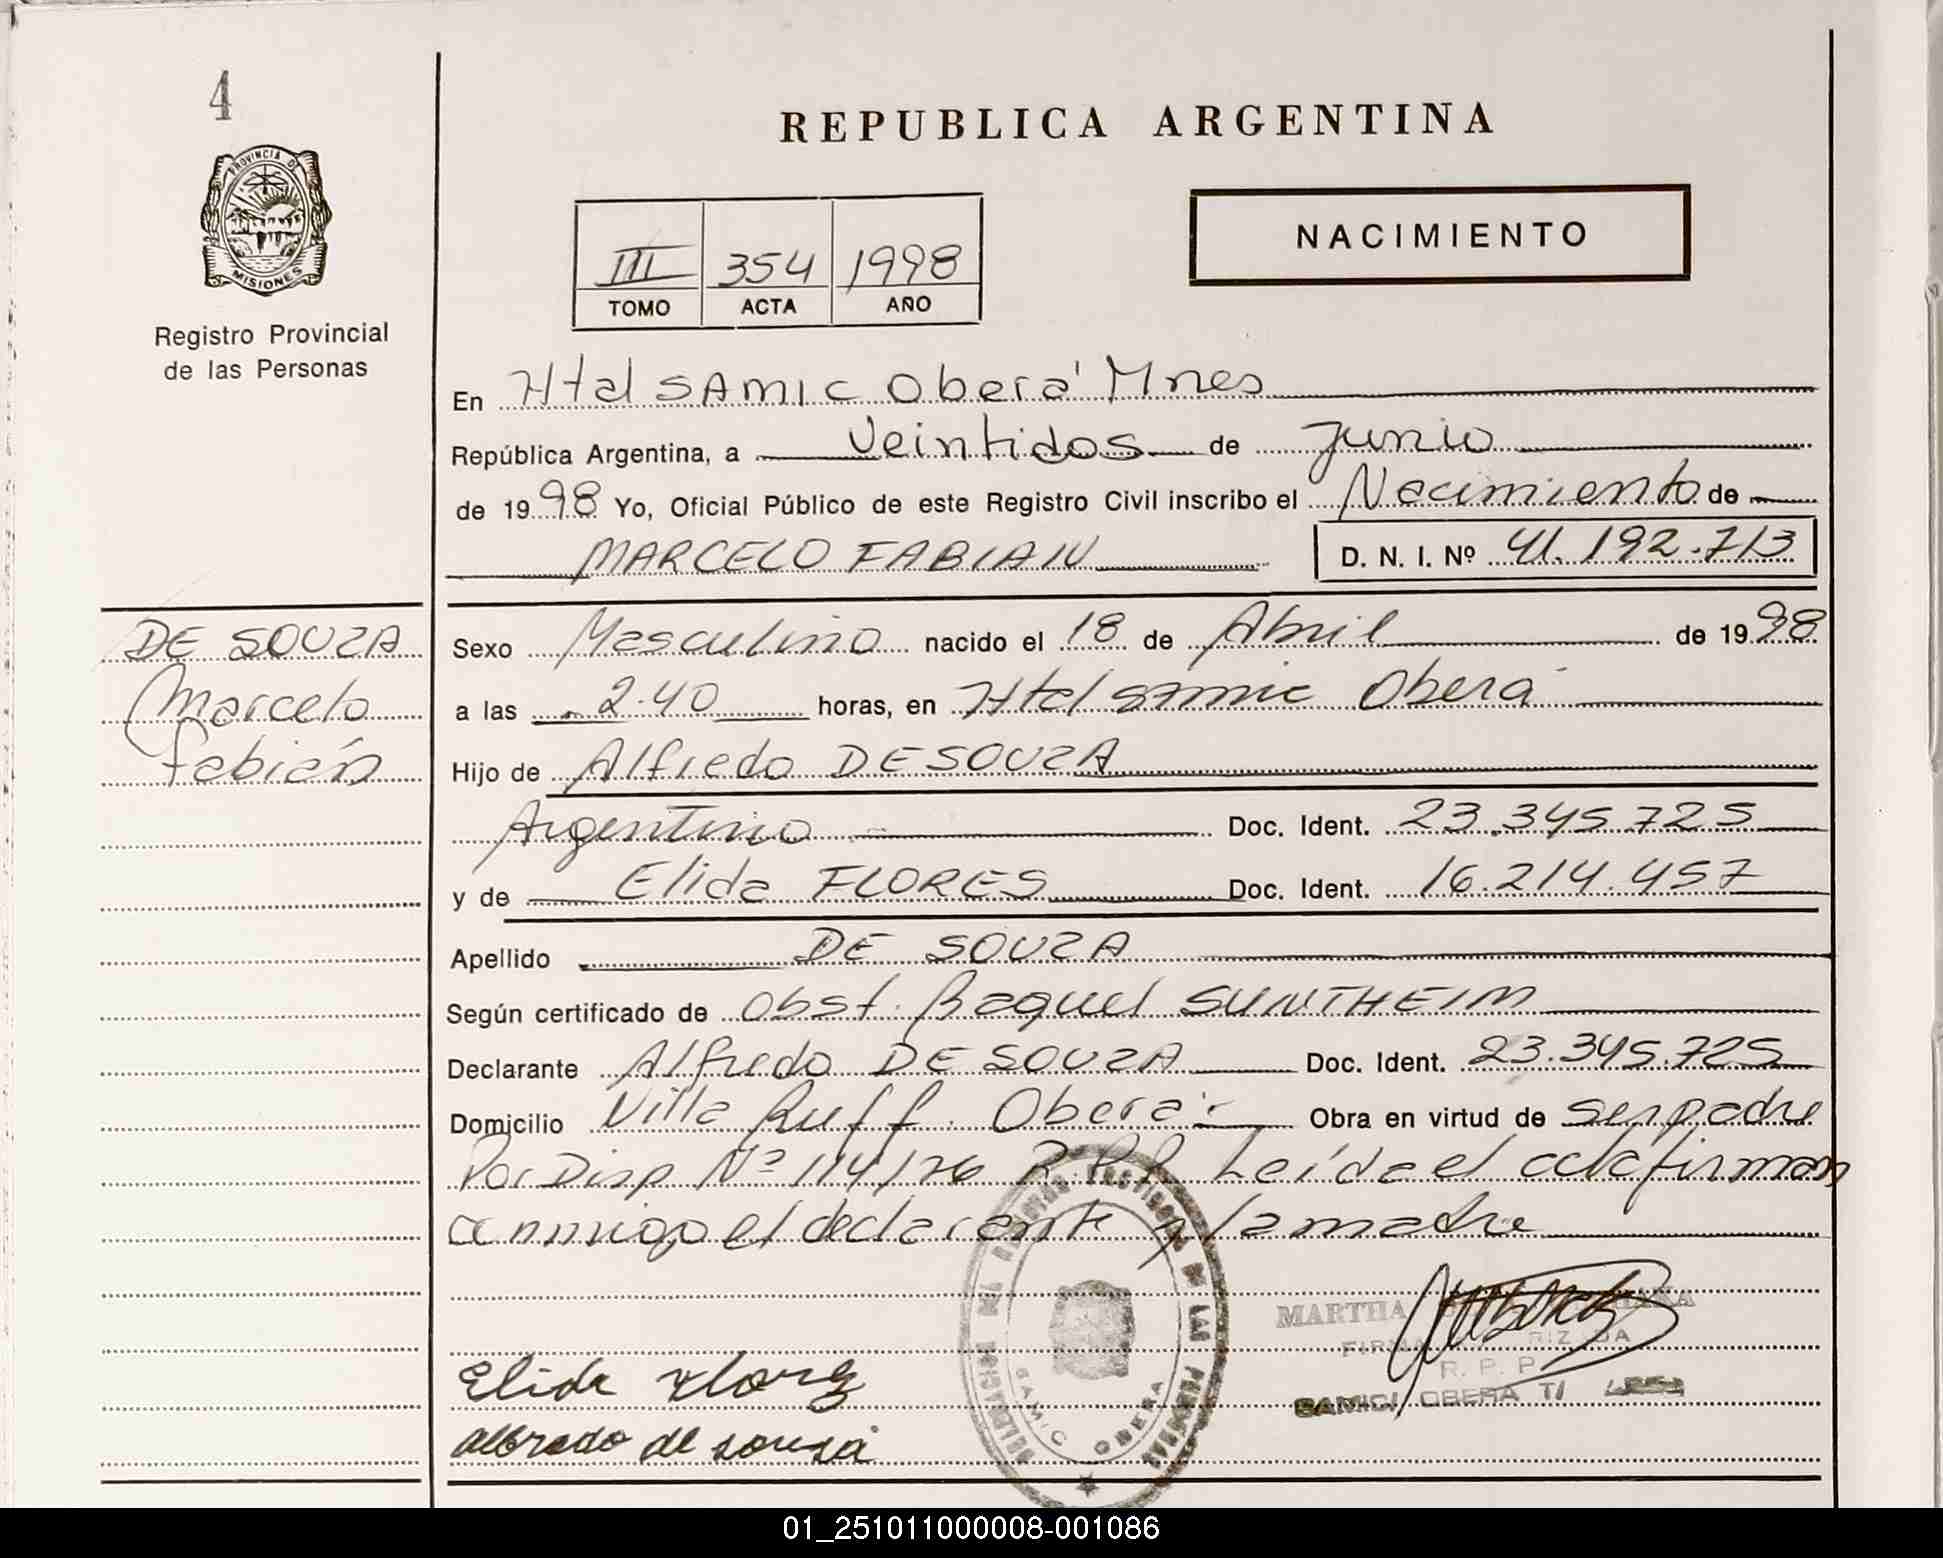 4
REPUBLICA ARGENTINA
PROVINCIA DE
MISIONES
Registro Provincial
de las Personas
III 354 1998
TOMO ACTA AÑO
NACIMIENTO
En Htal SAMIC Oberá Mnes
República Argentina, a Veintidos de Junio
de 1998 Yo, Oficial Público de este Registro Civil inscribo el Nacimiento de
MARCELO FABIAN D. N. I. Nº 41.192.713
DE SOUZA
Marcelo
Fabián
Sexo Masculino nacido el 18 de Abril de 1998
a las 2.40 horas, en Htal SAMIC Oberá
Hijo de Alfredo DE SOUZA
Argentino Doc. Ident. 23.345.725
y de Elida FLORES Doc. Ident. 16.214.457
Apellido DE SOUZA
Según certificado de Obst. Raquel SUNTHEIM
Declarante Alfredo DE SOUZA Doc. Ident. 23.345.725
Domicilio Villa Ruff. Oberá Obra en virtud de ser padre
Por Disp Nº 114/76 R.P.P. Leída el acta firman
conmigo el declarante y la madre
DELEGACION DEL REGISTRO PROVINCIAL DE LAS PERSONAS
SAMIC OBERA
MARTHA
R. P. P.
SAMIC OBERA
Elida Flores
Alfredo de souza
01_251011000008-001086